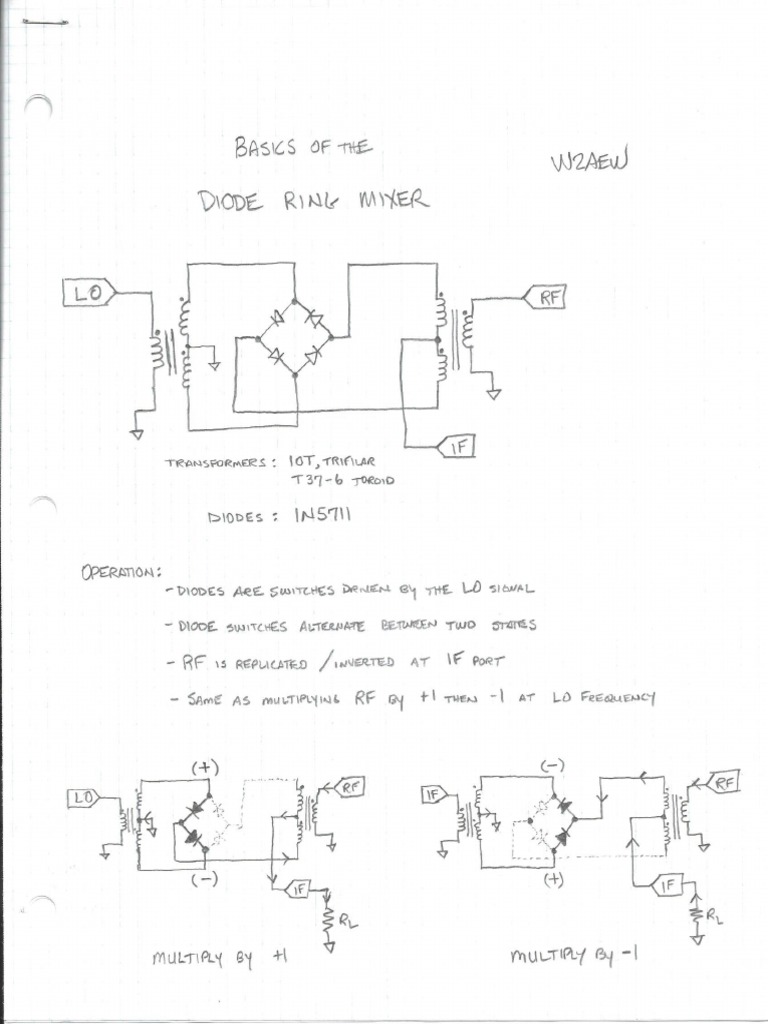 BASICS OF THE
W2AEW
DIODE RING MIXER
LO
RF
IF
TRANSFORMERS: 10T, TRIFILAR
T37-6 TOROID
DIODES: 1N5711
OPERATION:
- DIODES ARE SWITCHES DRIVEN BY THE LO SIGNAL
- DIODE SWITCHES ALTERNATE BETWEEN TWO STATES
- RF IS REPLICATED / INVERTED AT IF PORT
- SAME AS MULTIPLYING RF BY +1 THEN -1 AT LO FREQUENCY
(+)
LO
RF
(-)
IF
RL
MULTIPLY BY +1
(-)
IF
RF
(+)
IF
RL
MULTIPLY BY -1